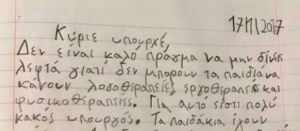 17/11/2017
Κύριε υπουργέ,
Δεν είναι καλό πράγμα να μην δίνεις
λεφτά γιατί δεν μπορούν τα παιδιά να
κάνουν λογοθεραπείες, εργοθεραπείες και
φυσικοθεραπείες. Για αυτό είστι πολύ
κακός υπουργός. Τα παιδάκια έχουν